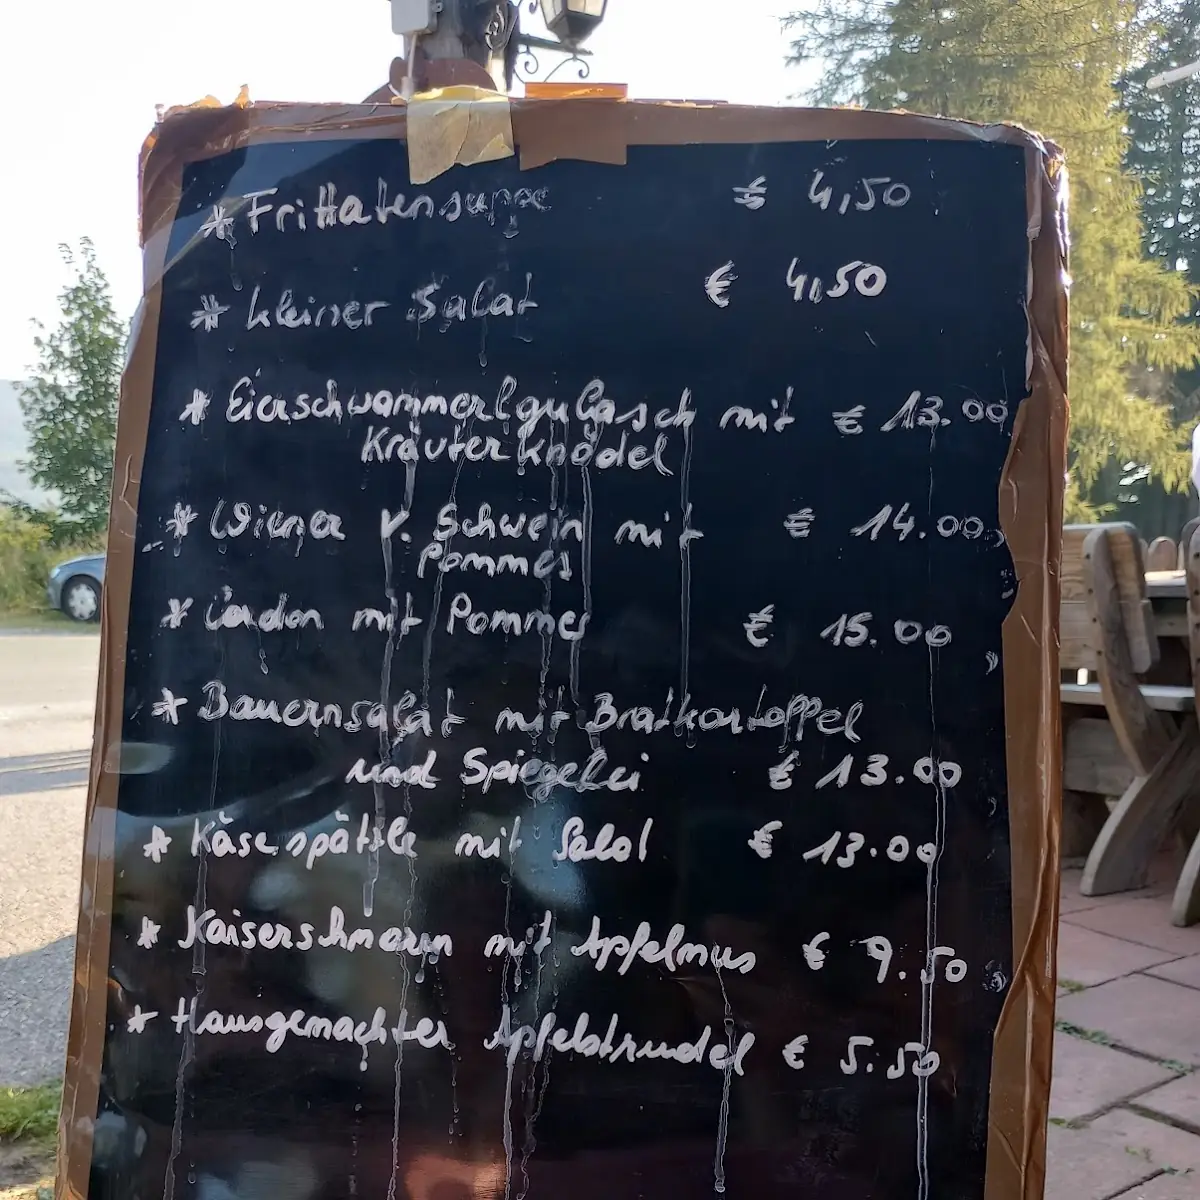 * Frittatensuppe € 4,50
* kleiner Salat € 4,50
* Eierschwammerlgulasch mit € 13.00
Kräuterknödel
* Wiener v. Schwein mit € 14.00
Pommes
* Cordon mit Pommes € 15.00
* Bauernsalat mit Bratkartoffel
und Spiegelei € 13.00
* Käsespätzle mit Salat € 13.00
* Kaiserschmarrn mit Apfelmus € 9.50
* Hausgemachter Apfelstrudel € 5.50